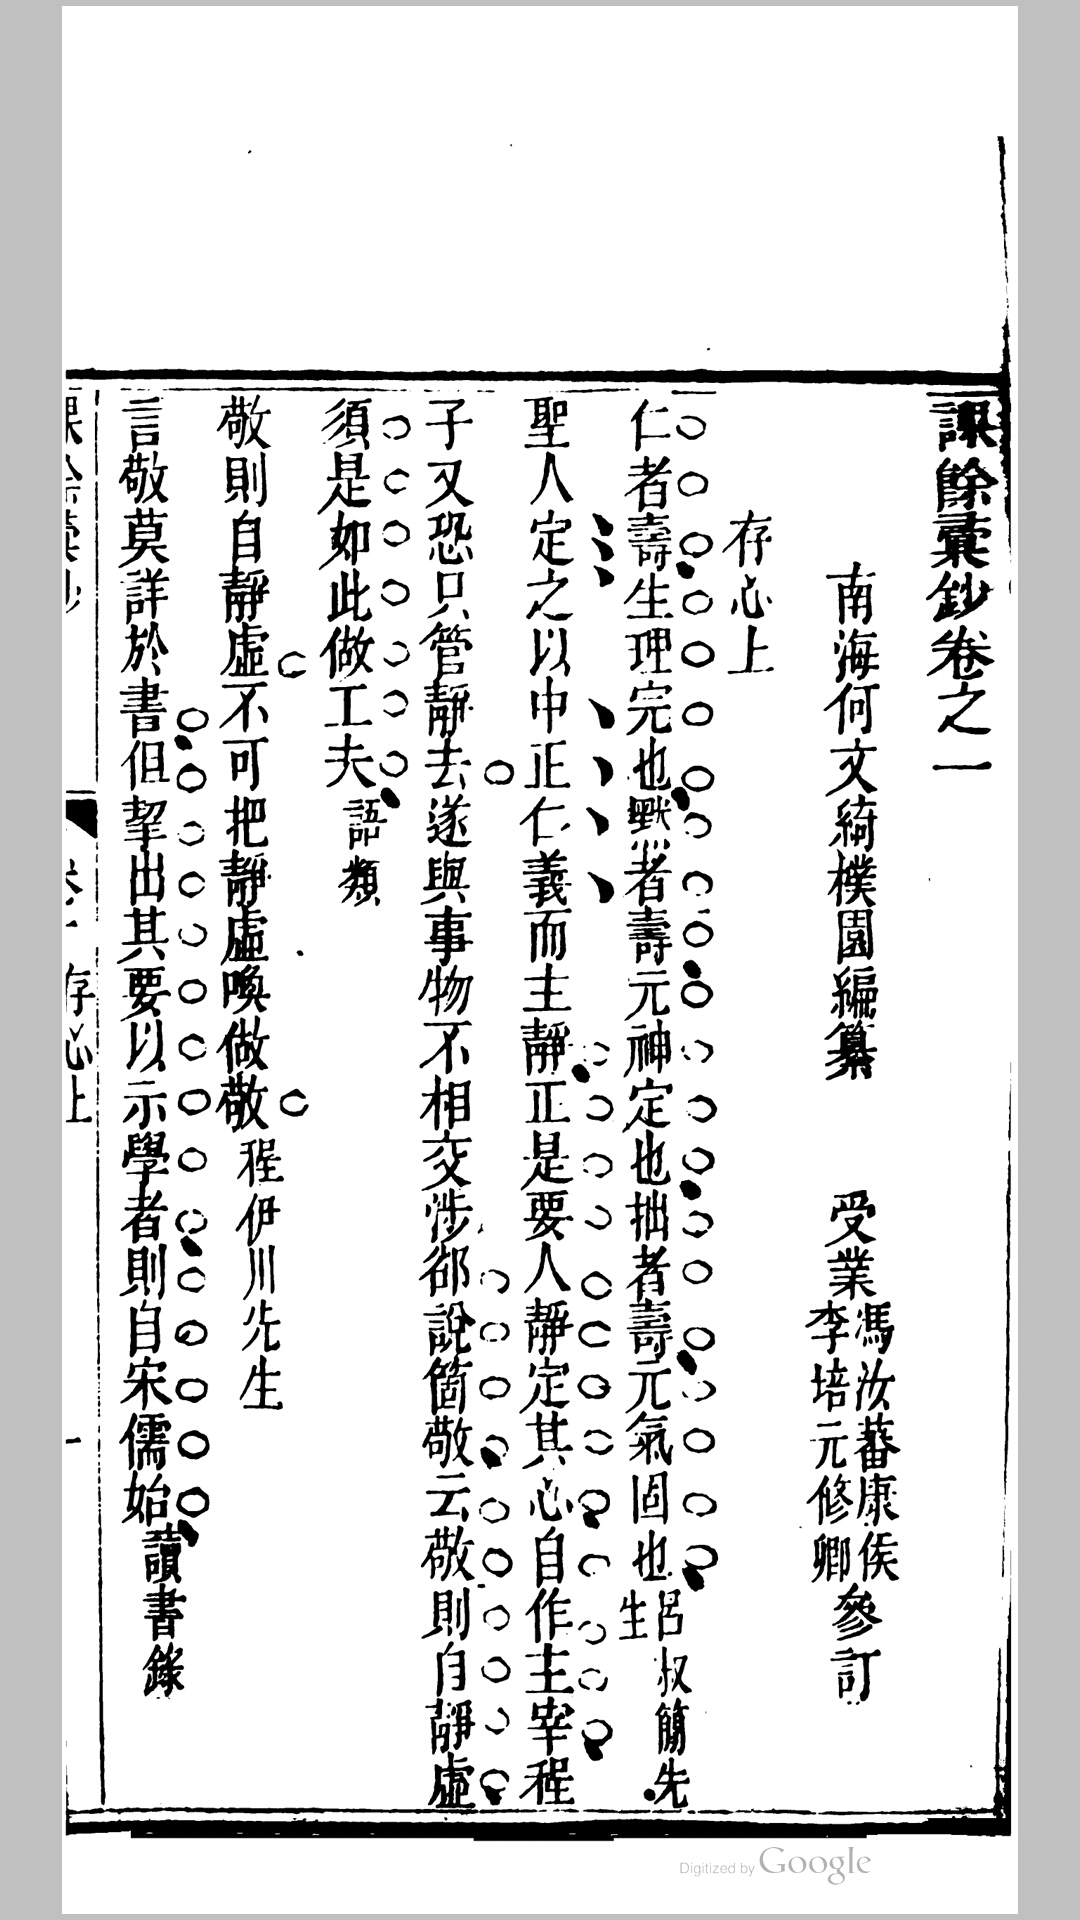 課餘彙鈔卷之一
南海何文綺樸園編纂
受業
馮汝蕃康侯
李培元修卿
參訂
存心上
仁者壽生理完也默者壽元神定也拙者壽元氣固也呂叔簡先生
聖人定之以中正仁義而主靜正是要人靜定其心自作主宰程
子又恐只管靜去遂與事物不相交涉郤說箇敬云敬則自靜虛
須是如此做工夫語類
敬則自靜虛不可把靜虛喚做敬程伊川先生
言敬莫詳於書但挈出其要以示學者則自宋儒始讀書錄
課餘彙鈔
卷一 存心上
一
Digitized by Google